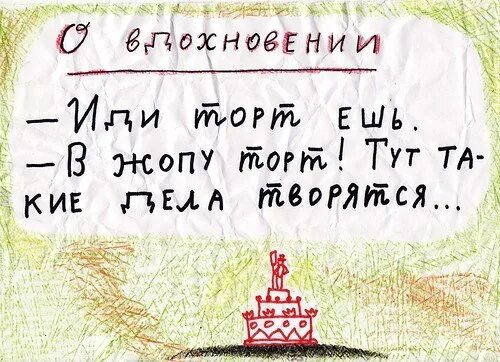 О вдохновении
— Иди торт ешь.
— В жопу торт! Тут та-
кие дела творятся...